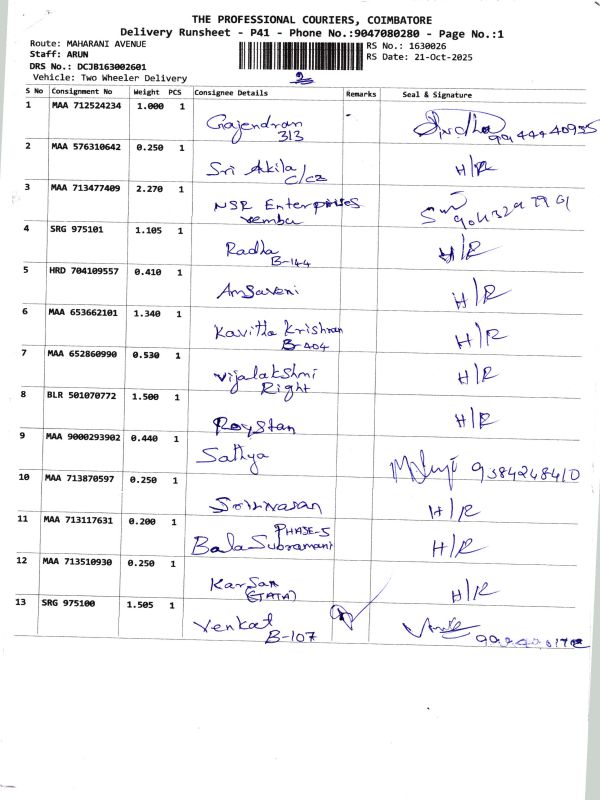 THE PROFESSIONAL COURIERS, COIMBATORE
Delivery Runsheet - P41 - Phone No.:9047080280 - Page No.:1
Route: MAHARANI AVENUE RS No.: 1630026
Staff: ARUN RS Date: 21-Oct-2025
DRS No.: DCJB163002601
Vehicle: Two Wheeler Delivery 2
S No Consignment No Weight PCS Consignee Details Remarks Seal & Signature
1 MAA 712524234 1.000 1
Gajendran
313
2 MAA 576310642 0.250 1
Sri Akila H/R
C/C2
3 MAA 713477409 2.270 1
NSR Enterprises
Vembu
4 SRG 975101 1.105 1
Radha H/R
B-144
5 HRD 704109557 0.410 1
Amsaveni H/R
6 MAA 653662101 1.340 1
Kavitha Krishnan H/R
B-404
7 MAA 652860990 0.530 1
Vijalakshmi H/R
Right
8 BLR 501070772 1.500 1
Roystan H/R
9 MAA 9000293902 0.440 1
Sathya 9384248410
10 MAA 713870597 0.250 1
Srinivasan H/R
11 MAA 713117631 0.200 1
PHASE-5
Bala Subramani H/R
12 MAA 713510930 0.250 1
Karsan H/R
(TATA)
13 SRG 975100 1.505 1
Venkat
B-107